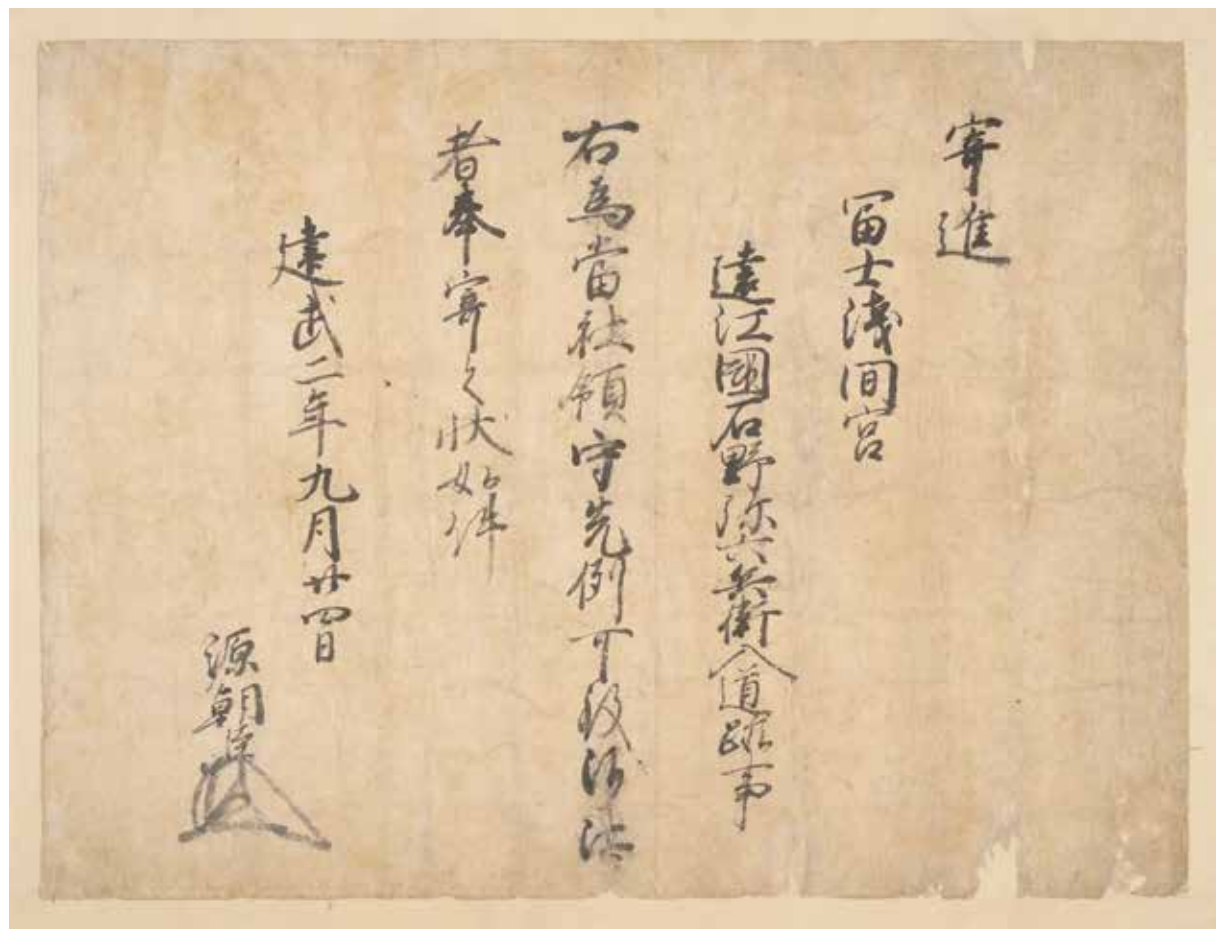 寄進
冨士淺間宮
遠江國石野弥六兵衛入道跡事
右為當社領守先例可致沙汰
者奉寄之状如件
建武二年九月廿四日
源朝臣